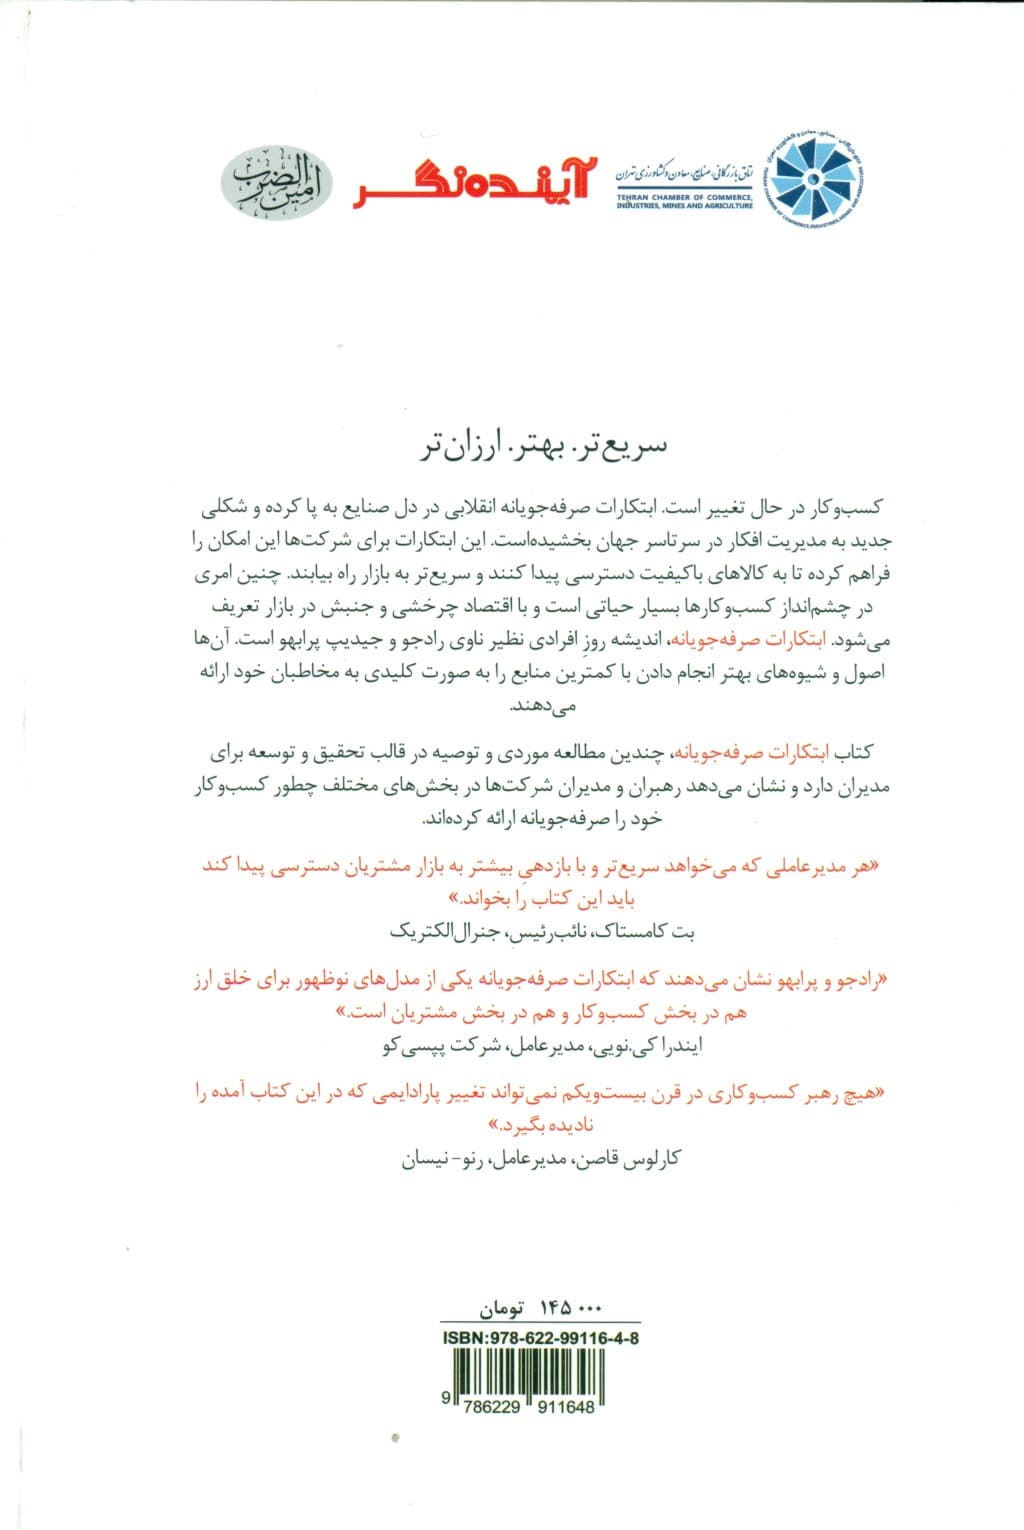 اتاق بازرگانی، صنایع، معادن و کشاورزی تهران
TEHRAN CHAMBER OF COMMERCE,
INDUSTRIES, MINES AND AGRICULTURE
آینده‌نگر
امین الضرب
سریع‌تر. بهتر. ارزان‌تر
کسب‌وکار در حال تغییر است. ابتکارات صرفه‌جویانه انقلابی در دل صنایع به پا کرده و شکلی
جدید به مدیریت افکار در سرتاسر جهان بخشیده‌است. این ابتکارات برای شرکت‌ها این امکان را
فراهم کرده تا به کالاهای باکیفیت دسترسی پیدا کنند و سریع‌تر به بازار راه بیابند. چنین امری
در چشم‌انداز کسب‌وکارها بسیار حیاتی است و با اقتصاد چرخشی و جنبش در بازار تعریف
می‌شود. ابتکارات صرفه‌جویانه، اندیشه روزِ افرادی نظیر ناوی رادجو و جیدیپ پرابهو است. آن‌ها
اصول و شیوه‌های بهتر انجام دادن با کمترین منابع را به صورت کلیدی به مخاطبان خود ارائه
می‌دهند.
کتاب ابتکارات صرفه‌جویانه، چندین مطالعه موردی و توصیه در قالب تحقیق و توسعه برای
مدیران دارد و نشان می‌دهد رهبران و مدیران شرکت‌ها در بخش‌های مختلف چطور کسب‌وکار
خود را صرفه‌جویانه ارائه کرده‌اند.
«هر مدیرعاملی که می‌خواهد سریع‌تر و با بازدهیِ بیشتر به بازار مشتریان دسترسی پیدا کند
باید این کتاب را بخواند.»
بت کامستاک، نائب‌رئیس، جنرال‌الکتریک
«رادجو و پرابهو نشان می‌دهند که ابتکارات صرفه‌جویانه یکی از مدل‌های نوظهور برای خلق ارز
هم در بخش کسب‌وکار و هم در بخش مشتریان است.»
ایندرا کی.نویی، مدیرعامل، شرکت پپسی‌کو
«هیچ رهبر کسب‌وکاری در قرن بیست‌ویکم نمی‌تواند تغییر پارادایمی که در این کتاب آمده را
نادیده بگیرد.»
کارلوس قاصن، مدیرعامل، رنو-نیسان
۱۴۵۰۰۰ تومان
ISBN:978-622-99116-4-8
9 786229 911648